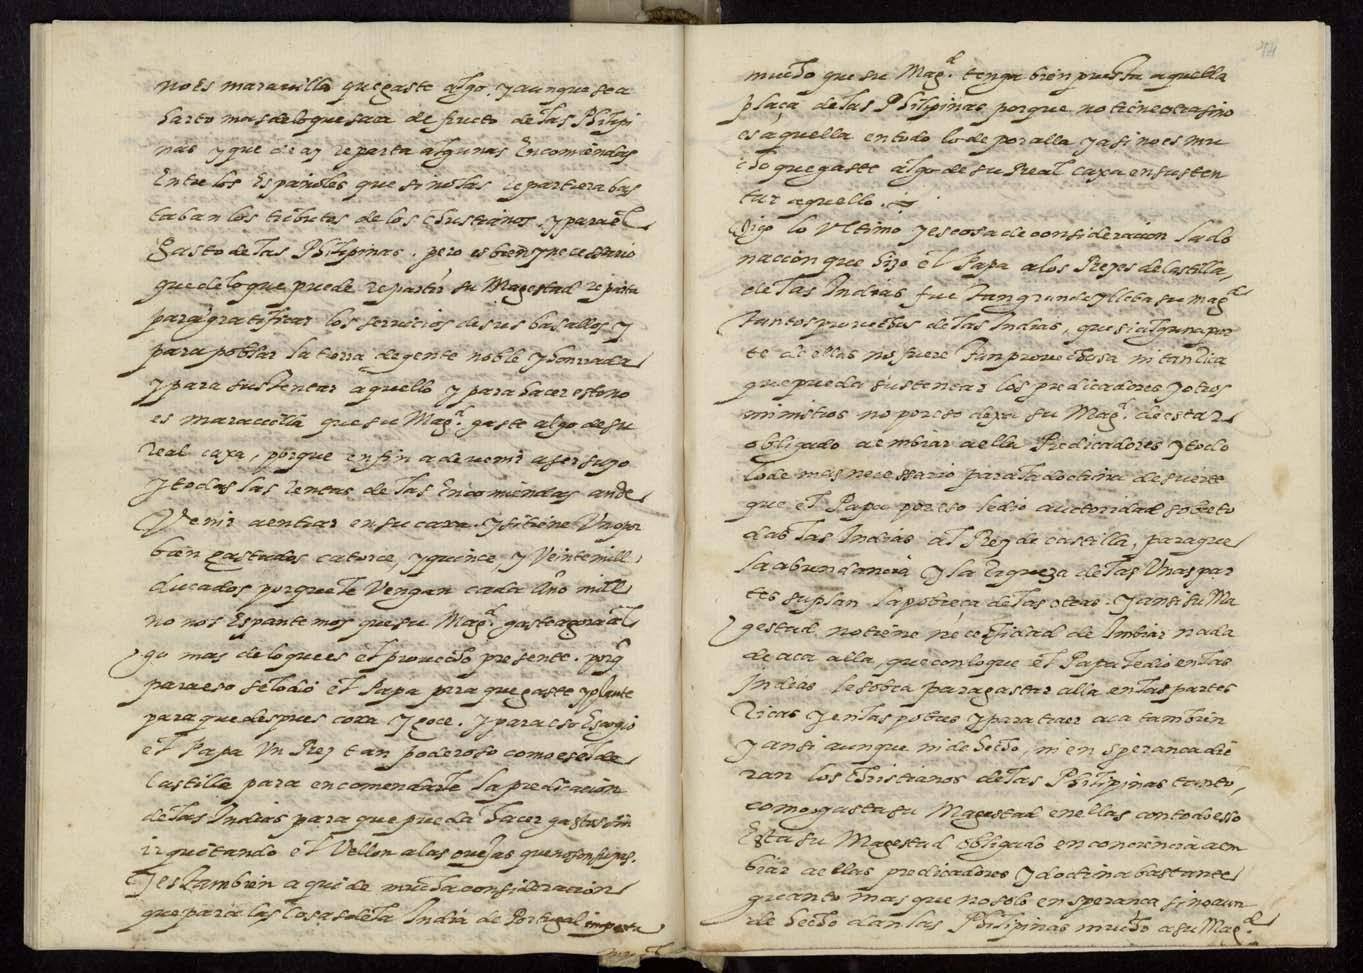 no es marauilla que gaste algo. y aunque sea
harto mas de lo que saca de fructo de las Philipi
nas y que de ay reparta algunas Encomiendas
Entre los Españoles que si no las repartiera bas
taban los tributos de los christianos. y para el
gasto de las Philipinas. pero es bien y necessario
que de lo que puede repartir su Magestad reparta
para gratificar los seruicios de sus basallos y
para poblar la tierra de gente noble y honrrada
y para sustentar aquello y para hacer esto no
es marauilla que su Mag.d gaste algo de su
real caxa, porque en fin a de uenir a ser suyo
y todas las rentas de las Encomiendas an de
Venir a entrar en su caxa. y si tiene Vno por
bien gastados catorce, y quince, y Veinte mill
ducados porque le Vengan cada Año mill
no nos Espantemos que su Mag.d gaste agora al
go mas de lo que es el prouecho presente. porq̃
para eso se lo dio el Papa para que gaste y plante
para que despues coxa y goce. y para eso Escogio
el Papa Vn Rey tan poderoso como es el de
Castilla para encomendarle la predicacion
de las Indias para que pueda hacer gastos sin
ir quitando el Vellon a las ouejas
y es tambien aqui de mucha consideracion
que para las Cosas de la India de Portugal importa
mucho que su Mag.d tenga bien puesta aquella
plaça de las Philipinas porque no tiene otra sino
es aquella en todo lo de por alla y asi no es mu
cho que gaste algo de su Real caxa en susten
tar aquello.
Digo lo Vltimo y es cosa de consideracion la do
nacion que hizo el Papa a los Reyes de Castilla,
de las Indias fue tan grande y lleba su mag.d
tantos prouechos de las Indias, que si alguna par
te de ellas no fuere tan prouechosa ni tan rica
que pueda sustentar los predicadores y otros
ministros no por eso dexa su Mag.d de estar
obligado a embiar a ella Predicadores y todo
lo de mas necessario para la doctrina de suerte
que el Papa por eso le dio autoridad sobre to
das las Indias al Rey de Castilla, para que
la abundancia y la riqueza de las Vnas par
tes suplan la pobreça de las otras. y ansi su Ma
gestad no tiene necessidad de Imbiar nada
de aca alla, que con lo que el Papa le dio en las
Indias le sobra para gastar alla en las partes
Ricas y en las pobres y para traer aca tambien
y ansi aunque ni de hecho, ni en sperança die
ran los christianos de las Philipinas tanto,
como gasta su Magestad en ellas con todo esso
Esta su Magestad obligado en conciencia a em
biar a ellas predicadores y doctrina bastante
quanto mas que no solo en sperança sino aun
de hecho dan las Philipinas mucho a su Mag.d